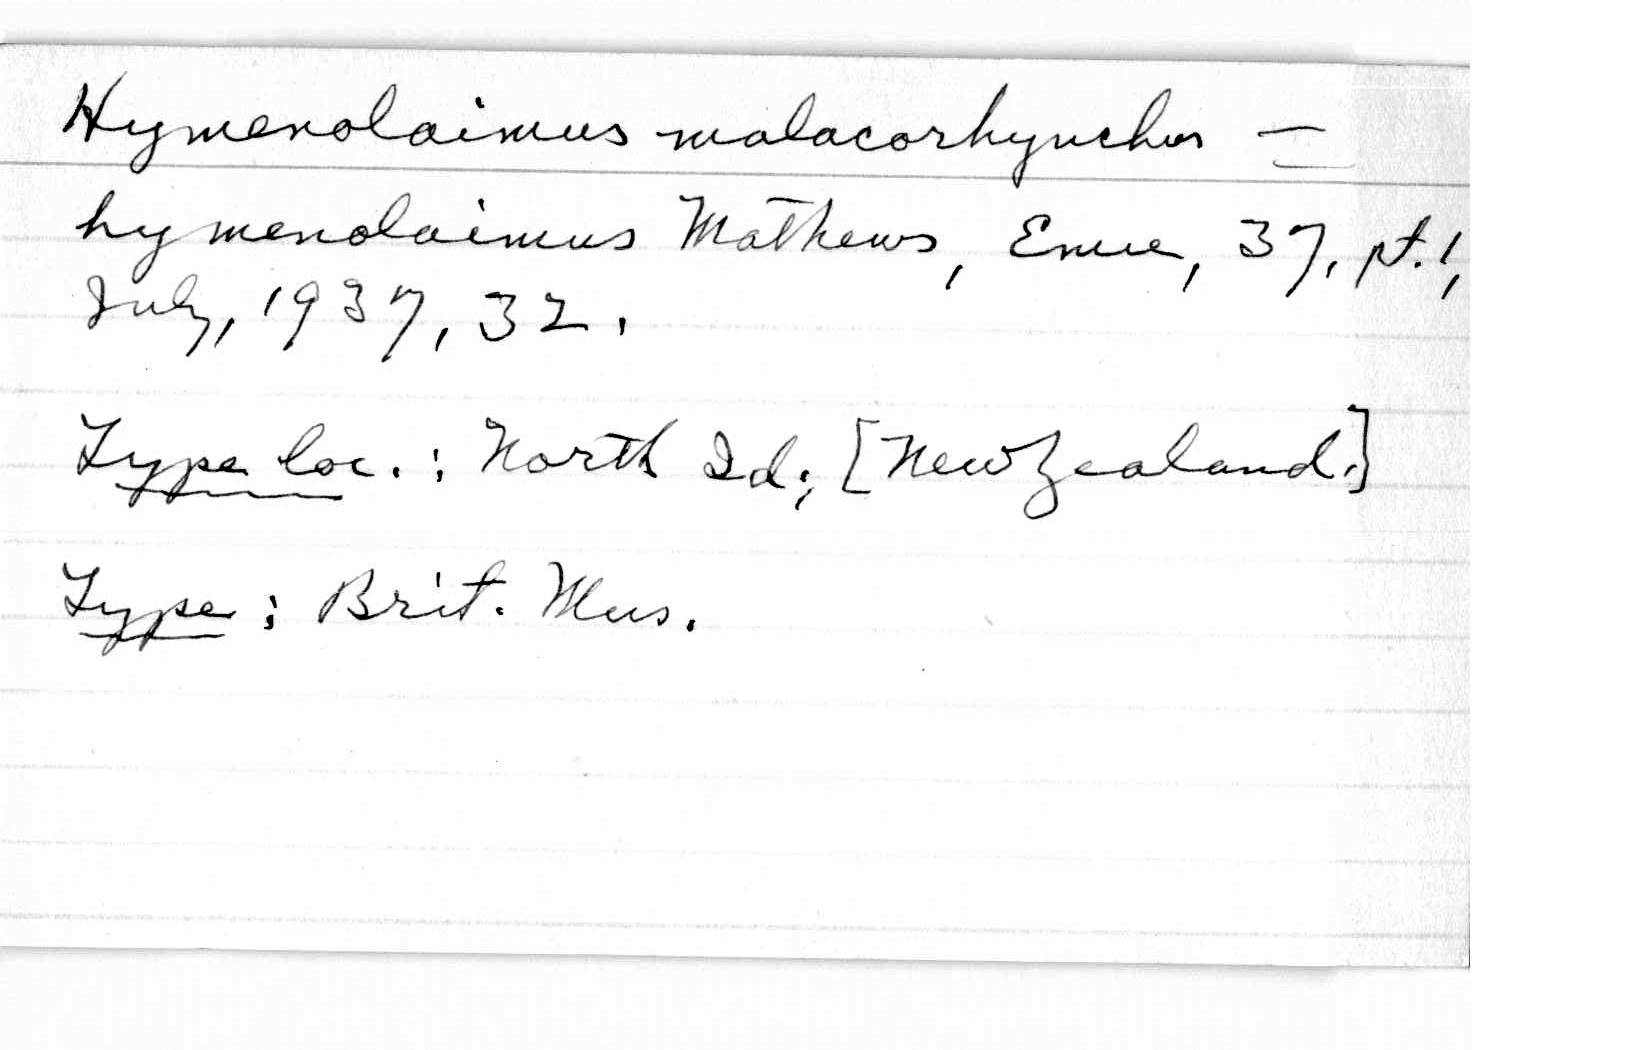 Hymenolaimus malacorhynchus —
hymenolaimus Mathews, Emu, 37, pt. 1,
July, 1937, 32.
Type loc. : North Id; [New Zealand.]
Type : Brit. Mus.